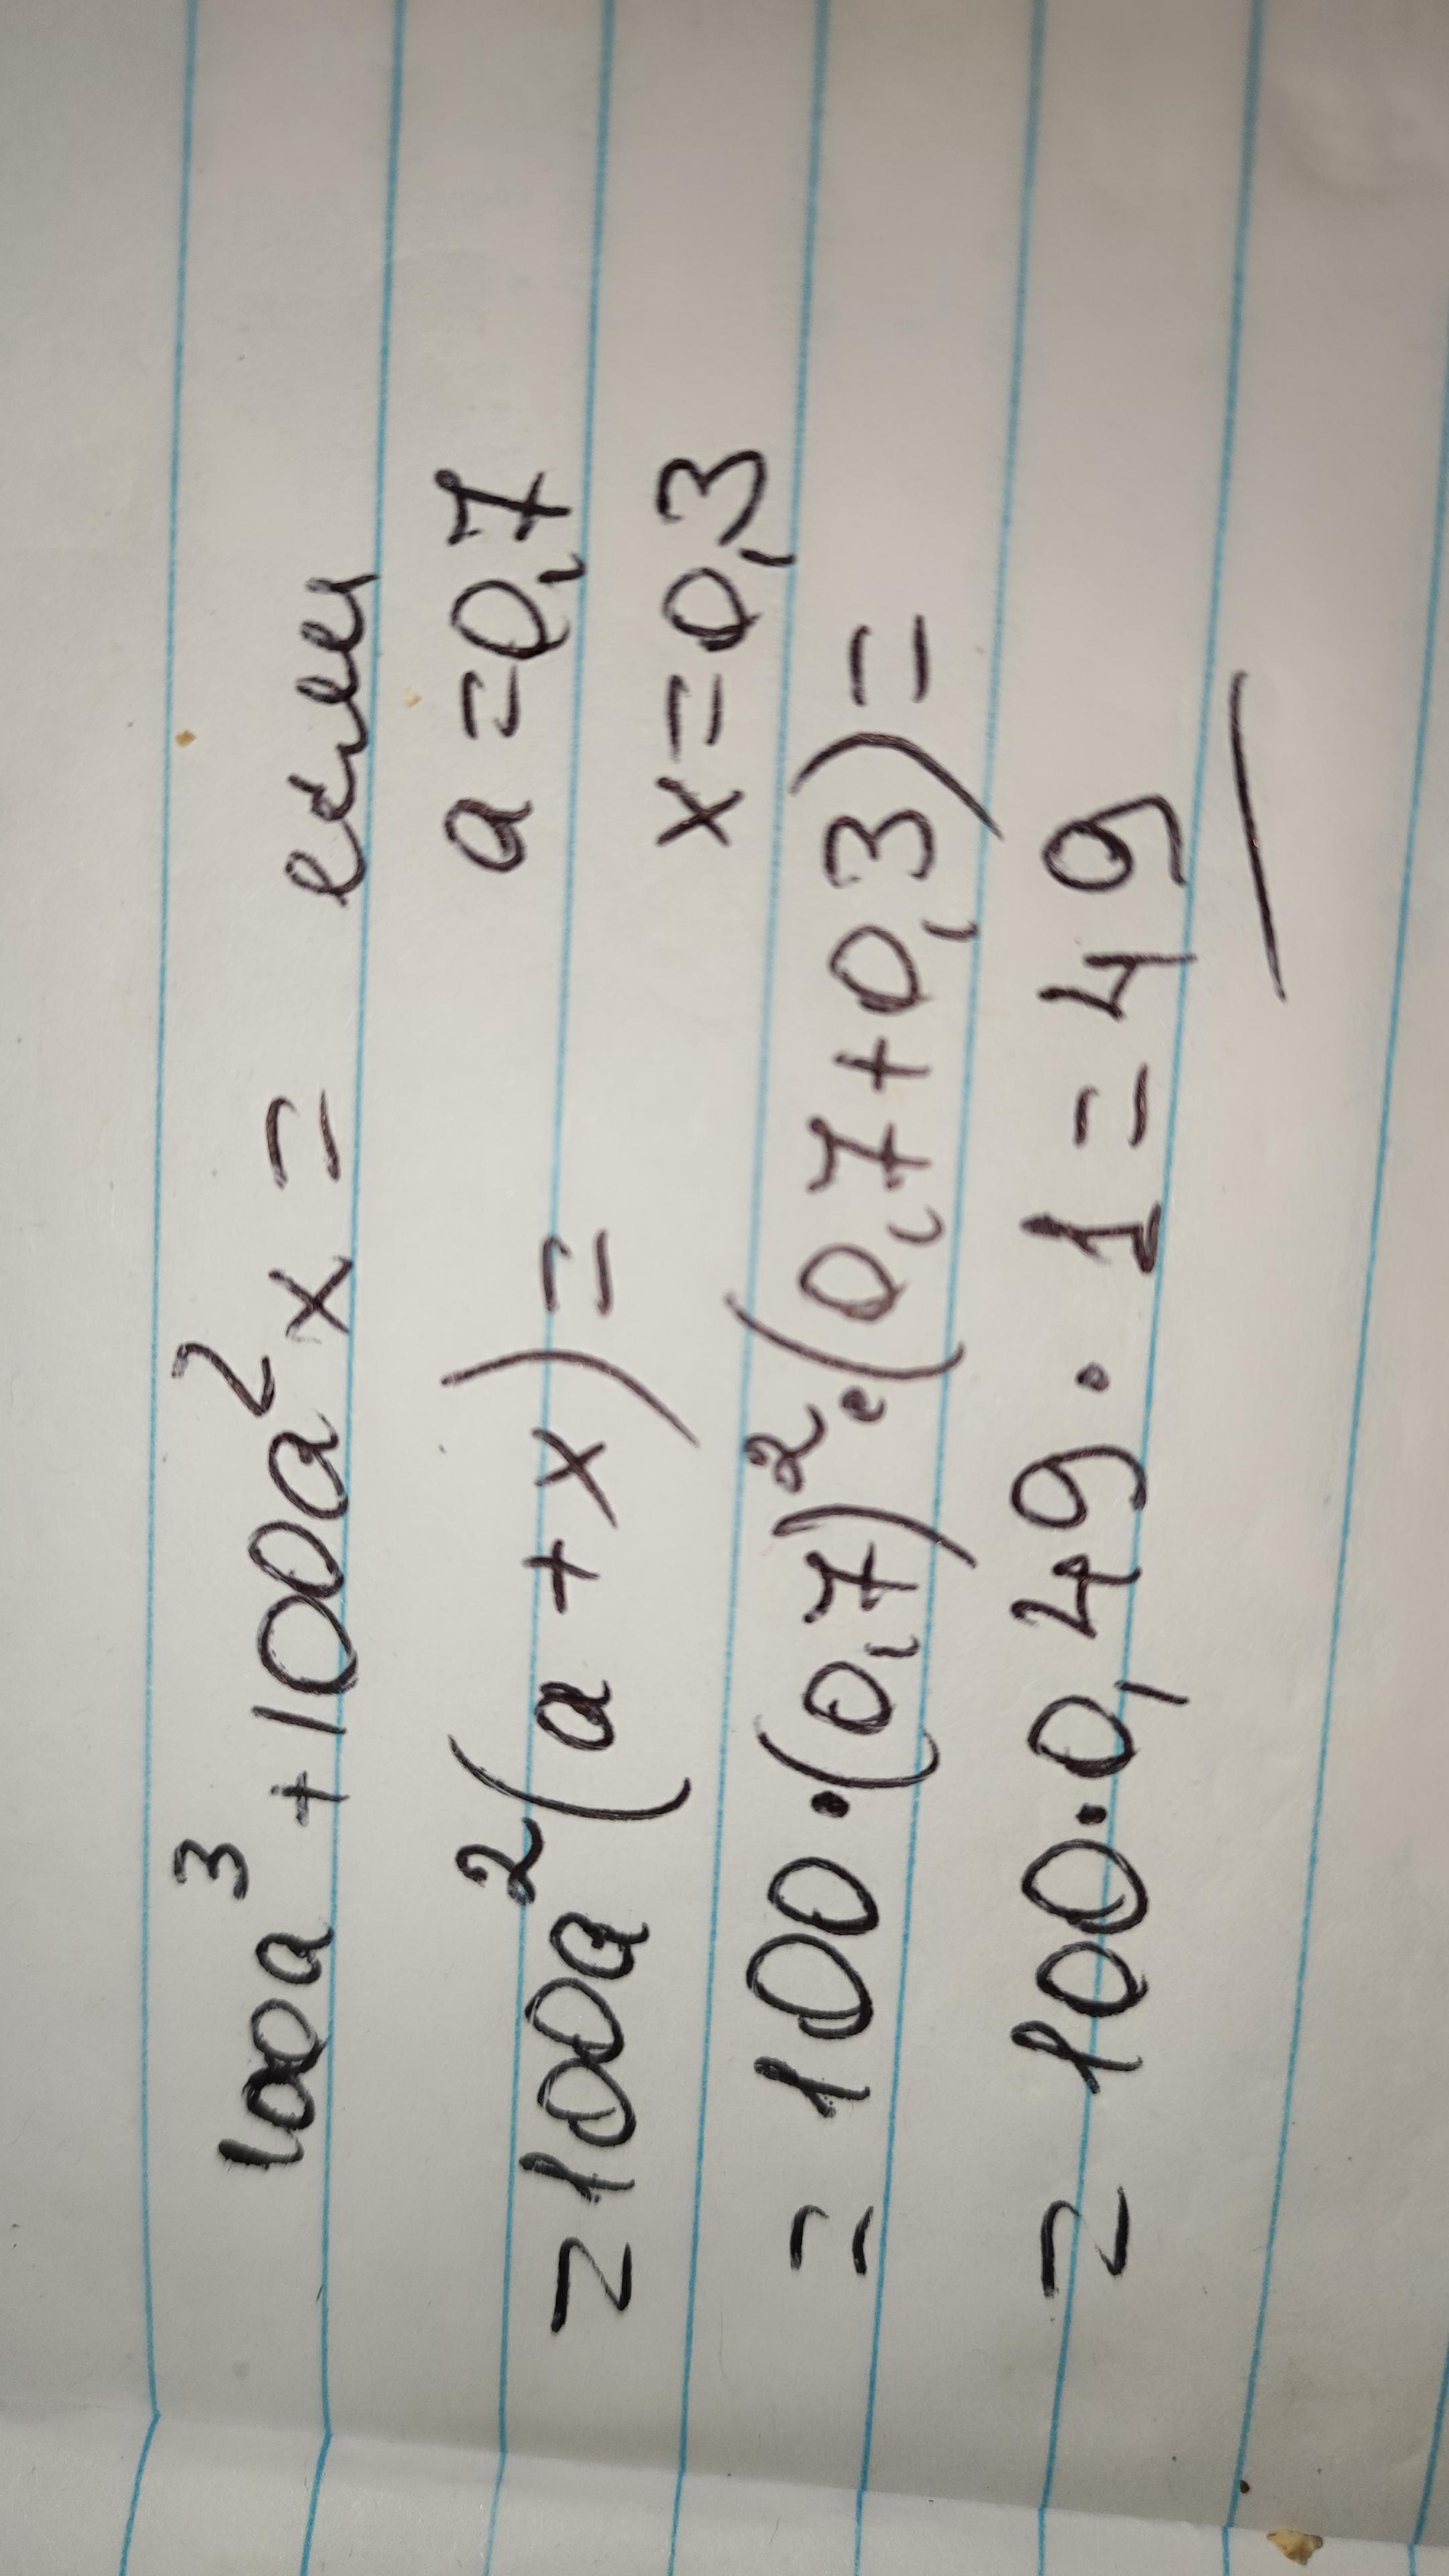 100a³ + 100a²x = если
a = 0,7
= 100a²(a + x) =
x = 0,3
= 100·(0,7)²·(0,7+0,3) =
= 100·0,49·1 = 49